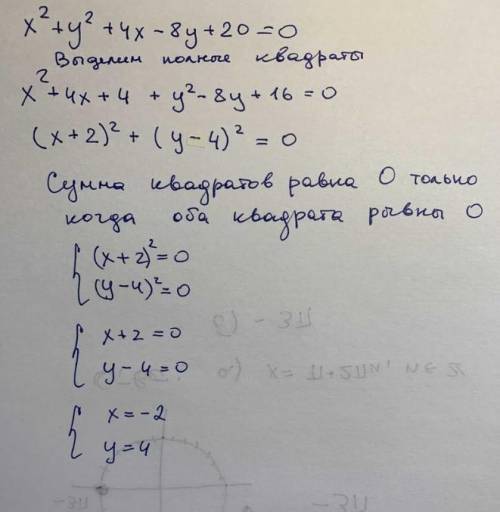 x²+y²+4x-8y+20=0
Выделим полные квадраты
x²+4x+4 + y²-8y+16=0
(x+2)² + (y-4)² = 0
Сумма квадратов равна 0 только
когда оба квадрата рывны 0
(x+2)²=0
(y-4)²=0
x+2=0
y-4=0
x=-2
y=4